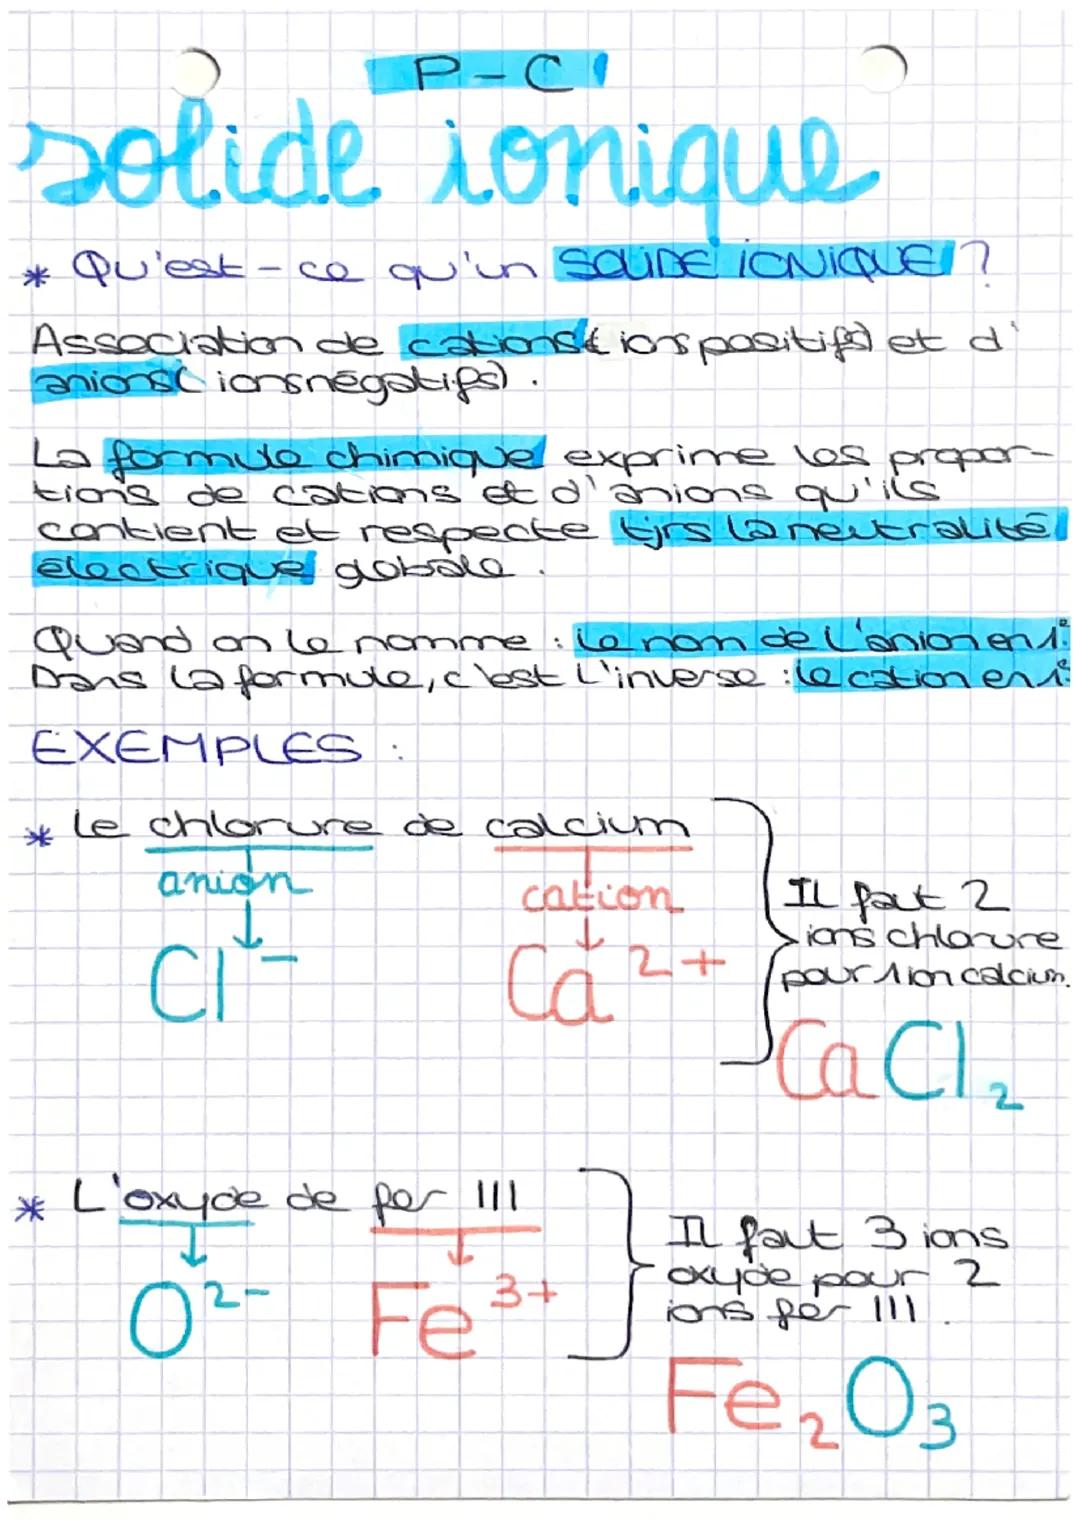 P-C
solide ionique
* Qu'est-ce qu'un SOLIDE IONIQUE ?
Association de cations (ions positifs) et d'
anions (ions négatifs).
La formule chimique exprime les propor-
tions de cations et d'anions qu'ils
contient et respecte tjrs la neutralité
électrique globale.
Quand on le nomme : le nom de l'anion en 1e
Dans la formule, c'est l'inverse : le cation en 1e
EXEMPLES :
* Le chlorure de calcium
anion cation
Cl⁻ Ca²⁺
Il faut 2
ions chlorure
pour 1 ion calcium.
CaCl₂
* L'oxyde de fer III
O²⁻ Fe³⁺
Il faut 3 ions
oxyde pour 2
ions fer III.
Fe₂O₃